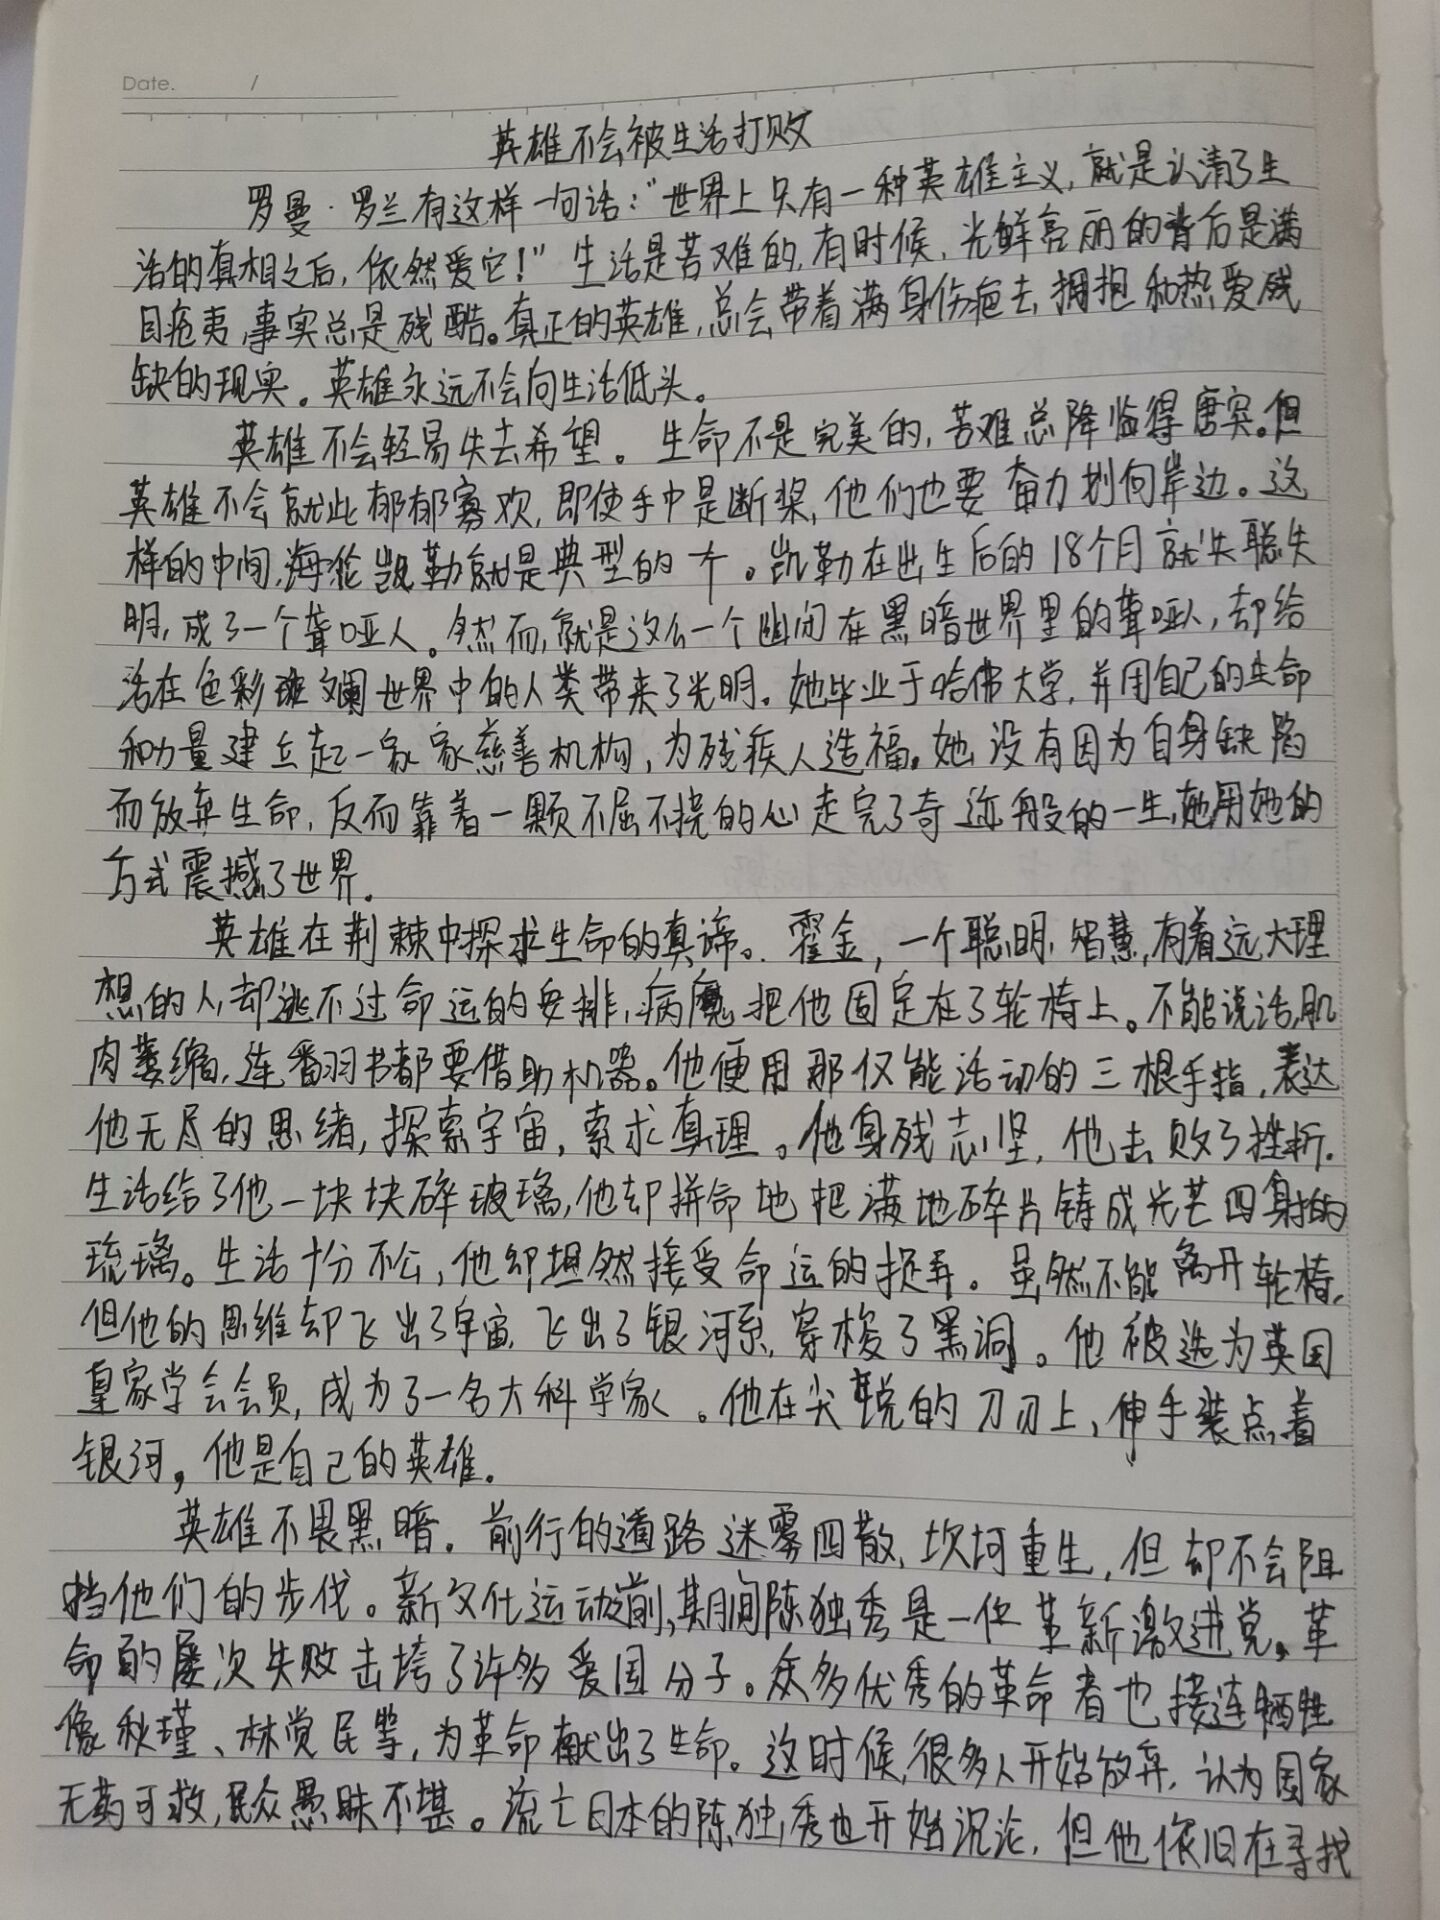 Date. /
英雄不会被生活打败
罗曼·罗兰有这样一句话:"世界上只有一种英雄主义,就是认清了生
活的真相之后,依然爱它!"生活是苦难的,有时候,光鲜亮丽的背后是满
目疮夷,事实总是残酷。真正的英雄,总会带着满身伤疤去拥抱和热爱残
缺的现实。英雄永远不会向生活低头。
英雄不会轻易失去希望。生命不是完美的,苦难总降临得唐突。但
英雄不会就此郁郁寡欢,即使手中是断桨,他们也要奋力划向岸边。这
样的中间,海伦凯勒就是典型的一个。凯勒在出生后的18个月就失聪失
明,成了一个聋哑人。然而,就是这么一个幽闭在黑暗世界里的聋哑人,却给
活在色彩斑斓世界中的人类带来了光明。她毕业于哈佛大学,并用自己的生命
和力量建立起一家家慈善机构,为残疾人造福。她没有因为自身缺陷
而放弃生命,反而靠着一颗不屈不挠的心走完了奇迹般的一生,她用她的
方式震撼了世界。
英雄在荆棘中探求生命的真谛。霍金,一个聪明,智慧,有着远大理
想的人,却逃不过命运的安排,病魔把他固定在了轮椅上。不能说话,肌
肉萎缩,连翻书都要借助机器。他便用那仅能活动的三根手指,表达
他无尽的思绪,探索宇宙,索求真理。他身残志坚,他击败了挫折.
生活给了他一块块碎玻璃,他却拼命地把满地碎片铸成光芒四射的
琉璃。生活十分不公,他却坦然接受命运的捉弄。虽然不能离开轮椅,
但他的思维却飞出了宇宙,飞出了银河系,穿梭了黑洞。他被选为英国
皇家学会会员,成为了一名大科学家。他在尖锐的刀刃上,伸手装点着
银河,他是自己的英雄.
英雄不畏黑暗。前行的道路迷雾四散,坎坷重生,但却不会阻
挡他们的步伐。新文化运动前,期间陈独秀是一位革新激进党,革
命的屡次失败击垮了许多爱国分子。众多优秀的革命者也接连牺牲
像秋瑾、林觉民等,为革命献出了生命。这时候,很多人开始放弃,认为国家
无药可救,民众愚昧不堪。流亡日本的陈独秀也开始沉沦,但他依旧在寻找